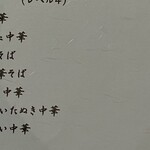 (レベル4)
華
中華
そば
華そば
中華
いたぬき中華
い中華